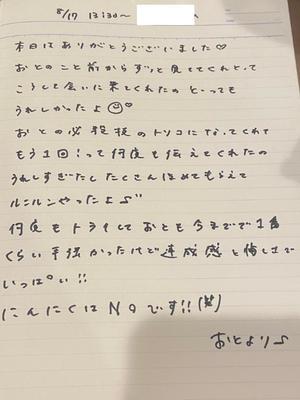 8/17 13:30〜
本日はありがとうございました♡
おとのこと前からずっと見ててくれとって
こうして会いに来てくれたのとっても
うれしかったよ☺♡
おとの必殺技のトリコになってくれて
もう1回！って何度も伝えてくれたの
うれしすぎたしたくさんほめてもらえて
ルンルンやったよ♪"
何度もトライしておとも今までで1番
くらい手強かったけど達成感と悔しさで
いっぱい!!
にんにくはNOです!!(笑)
おとより♪